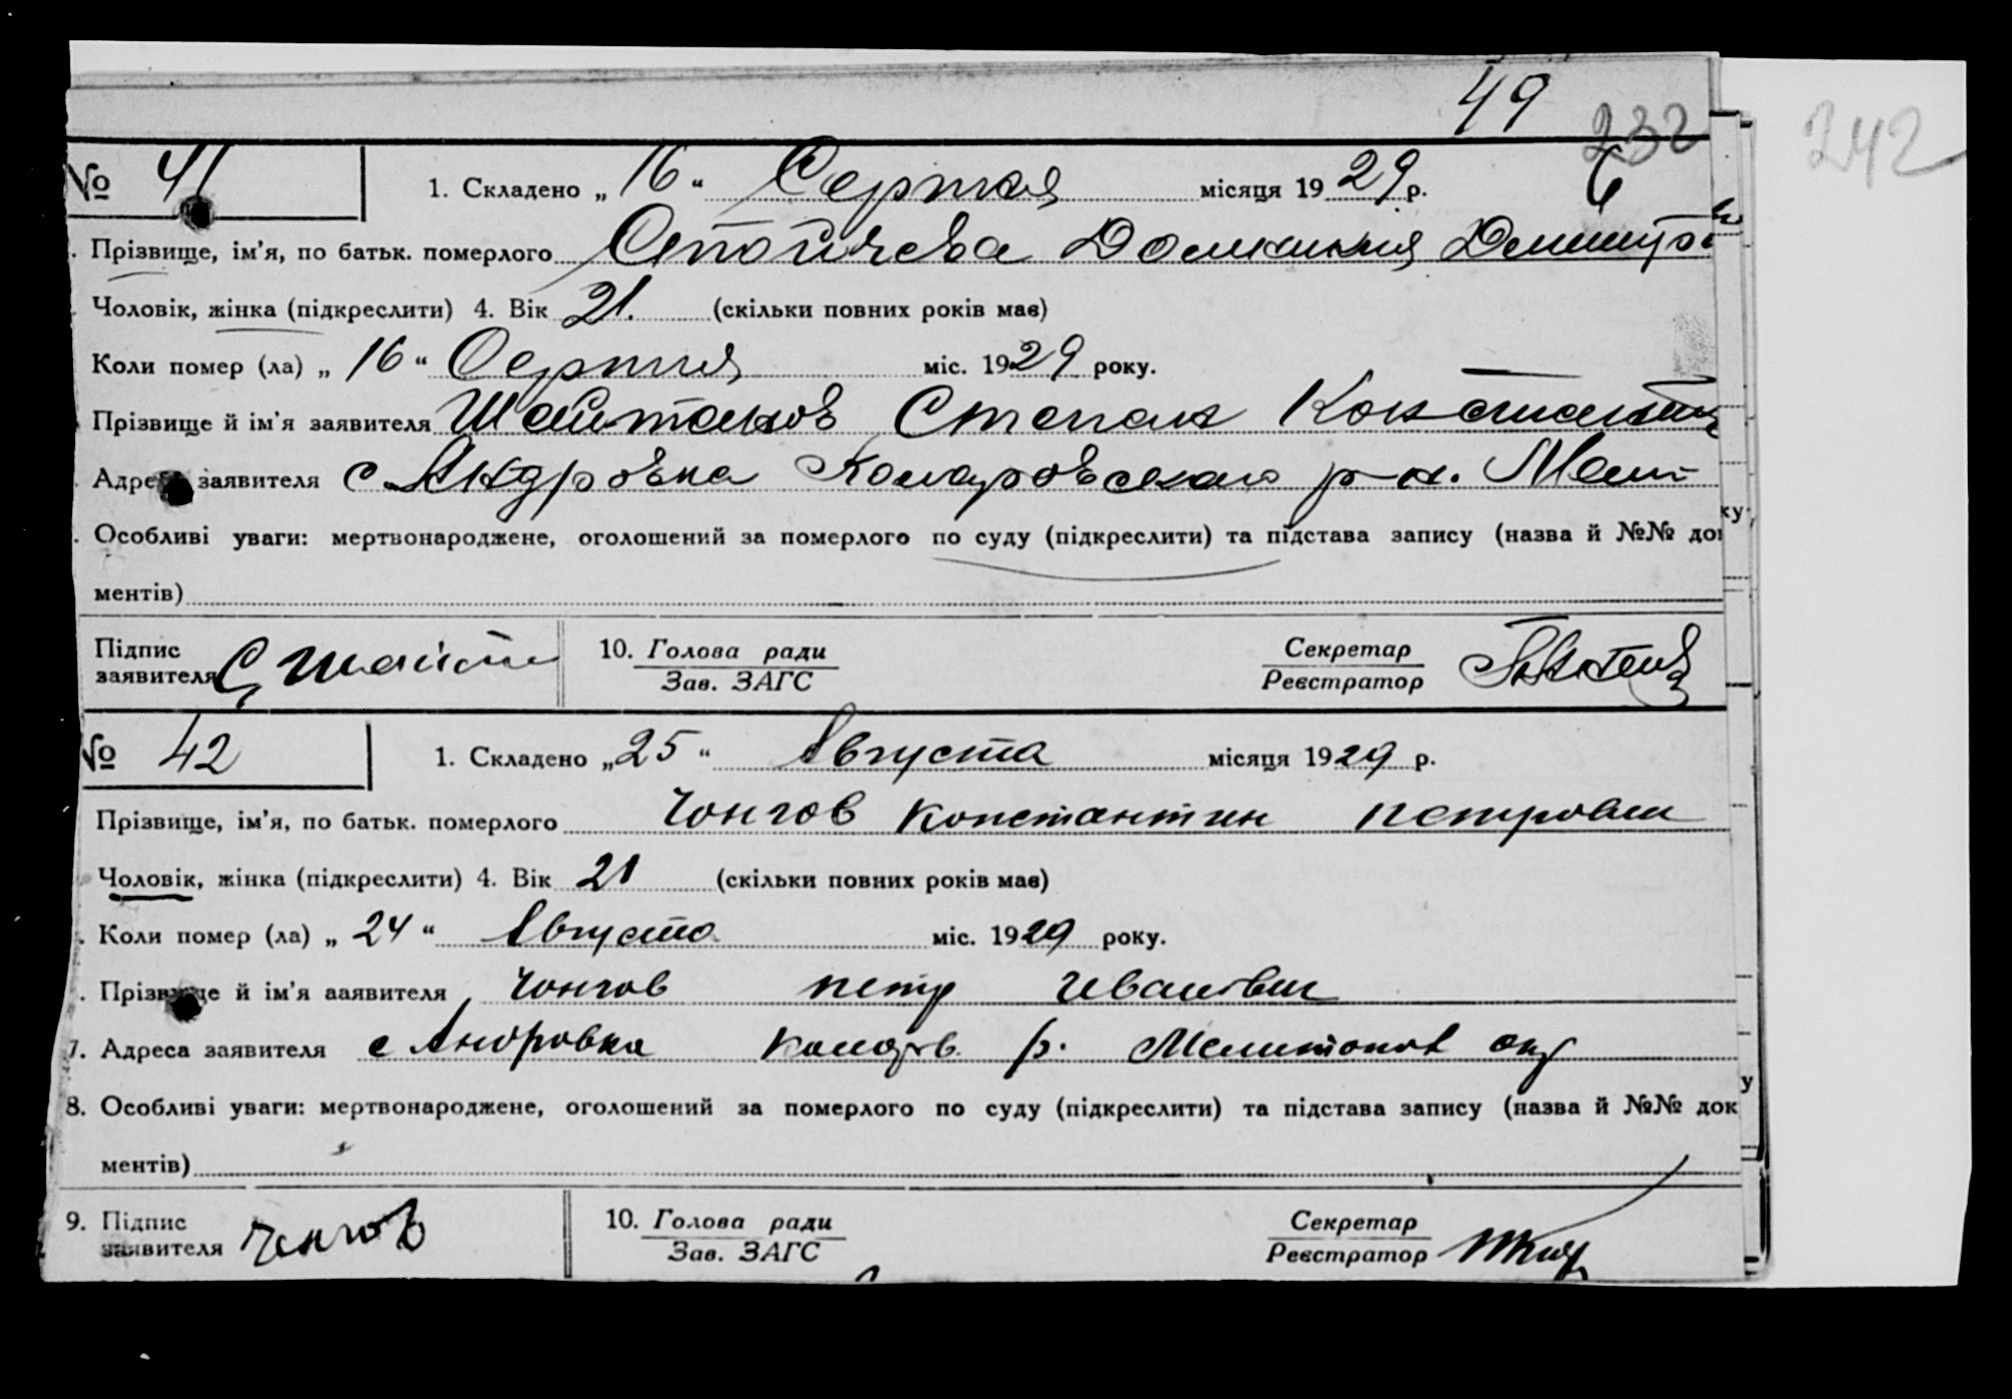 49
232
242
№ 41 1. Складено „ 16 “ Серпня місяця 19 29 р. 6
Прізвище, ім'я, по батьк. померлого Стойчева Домникия Дмитро
Чоловік, жінка (підкреслити) 4. Вік 21. (скільки повних років має)
Коли помер (ла) „ 16 “ Серпня міс. 19 29 року.
Прізвище й ім'я заявителя Шайтанов Степан Константин
Адреса заявителя с Андровка Комаровского р-н. Мели
Особливі уваги: мертвонароджене, оголошений за померлого по суду (підкреслити) та підстава запису (назва й №№ док
ментів)
Підпис 10. Голова ради Секретар
заявителя С Шайтан Зав. ЗАГС Реєстратор
№ 42 1. Складено „ 25 “ Августа місяця 19 29 р.
Прізвище, ім'я, по батьк. померлого Чонгов Константин Петрович
Чоловік, жінка (підкреслити) 4. Вік 21 (скільки повних років має)
Коли помер (ла) „ 24 “ Августа міс. 19 29 року.
Прізвище й ім'я аявителя Чонгов Петр Иванович
7. Адреса заявителя с Андровка Комаров. р. Мелитопов окр
8. Особливі уваги: мертвонароджене, оголошений за померлого по суду (підкреслити) та підстава запису (назва й №№ док
ментів)
9. Підпис 10. Голова ради Секретар
заявителя Чонгов Зав. ЗАГС Реєстратор